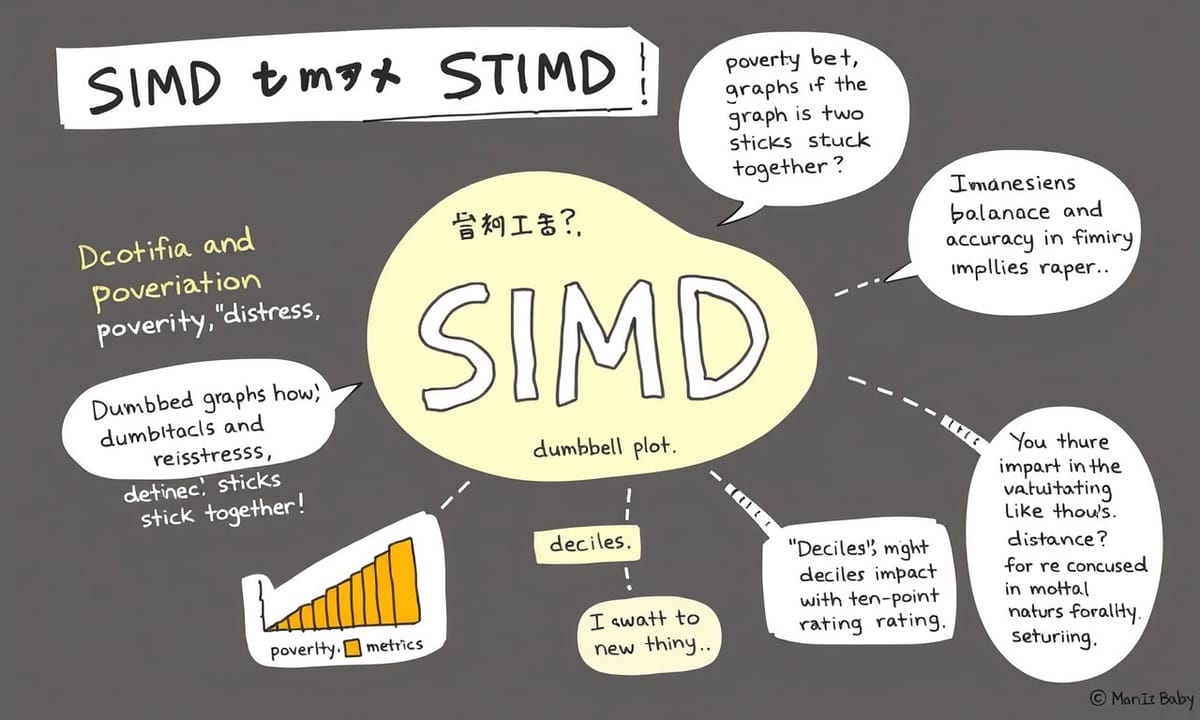 SIMD STIMD!
poverty bet,
graphs if the
graph is two
sticks stuck
together?
Imanesiens
balanace and
accuracy in fimiry
impllies raper..
Dcotifia and
poveriation
poverity,"distress,
SIMD
dumbbell plot.
Dumbbed graphs how;
dumbitacls and
reisstresss,
detinec! sticks
stick together!
poverlty. metrics
deciles.
I awatt to
new thiny..
"Deciles", might
deciles impact
with ten-point
rating rating.
You thure
impart in the
vatuitating
Like thow's.
distance?
for re concused
in mottal
naturs forality.
seturiing.
© ManIz Baby